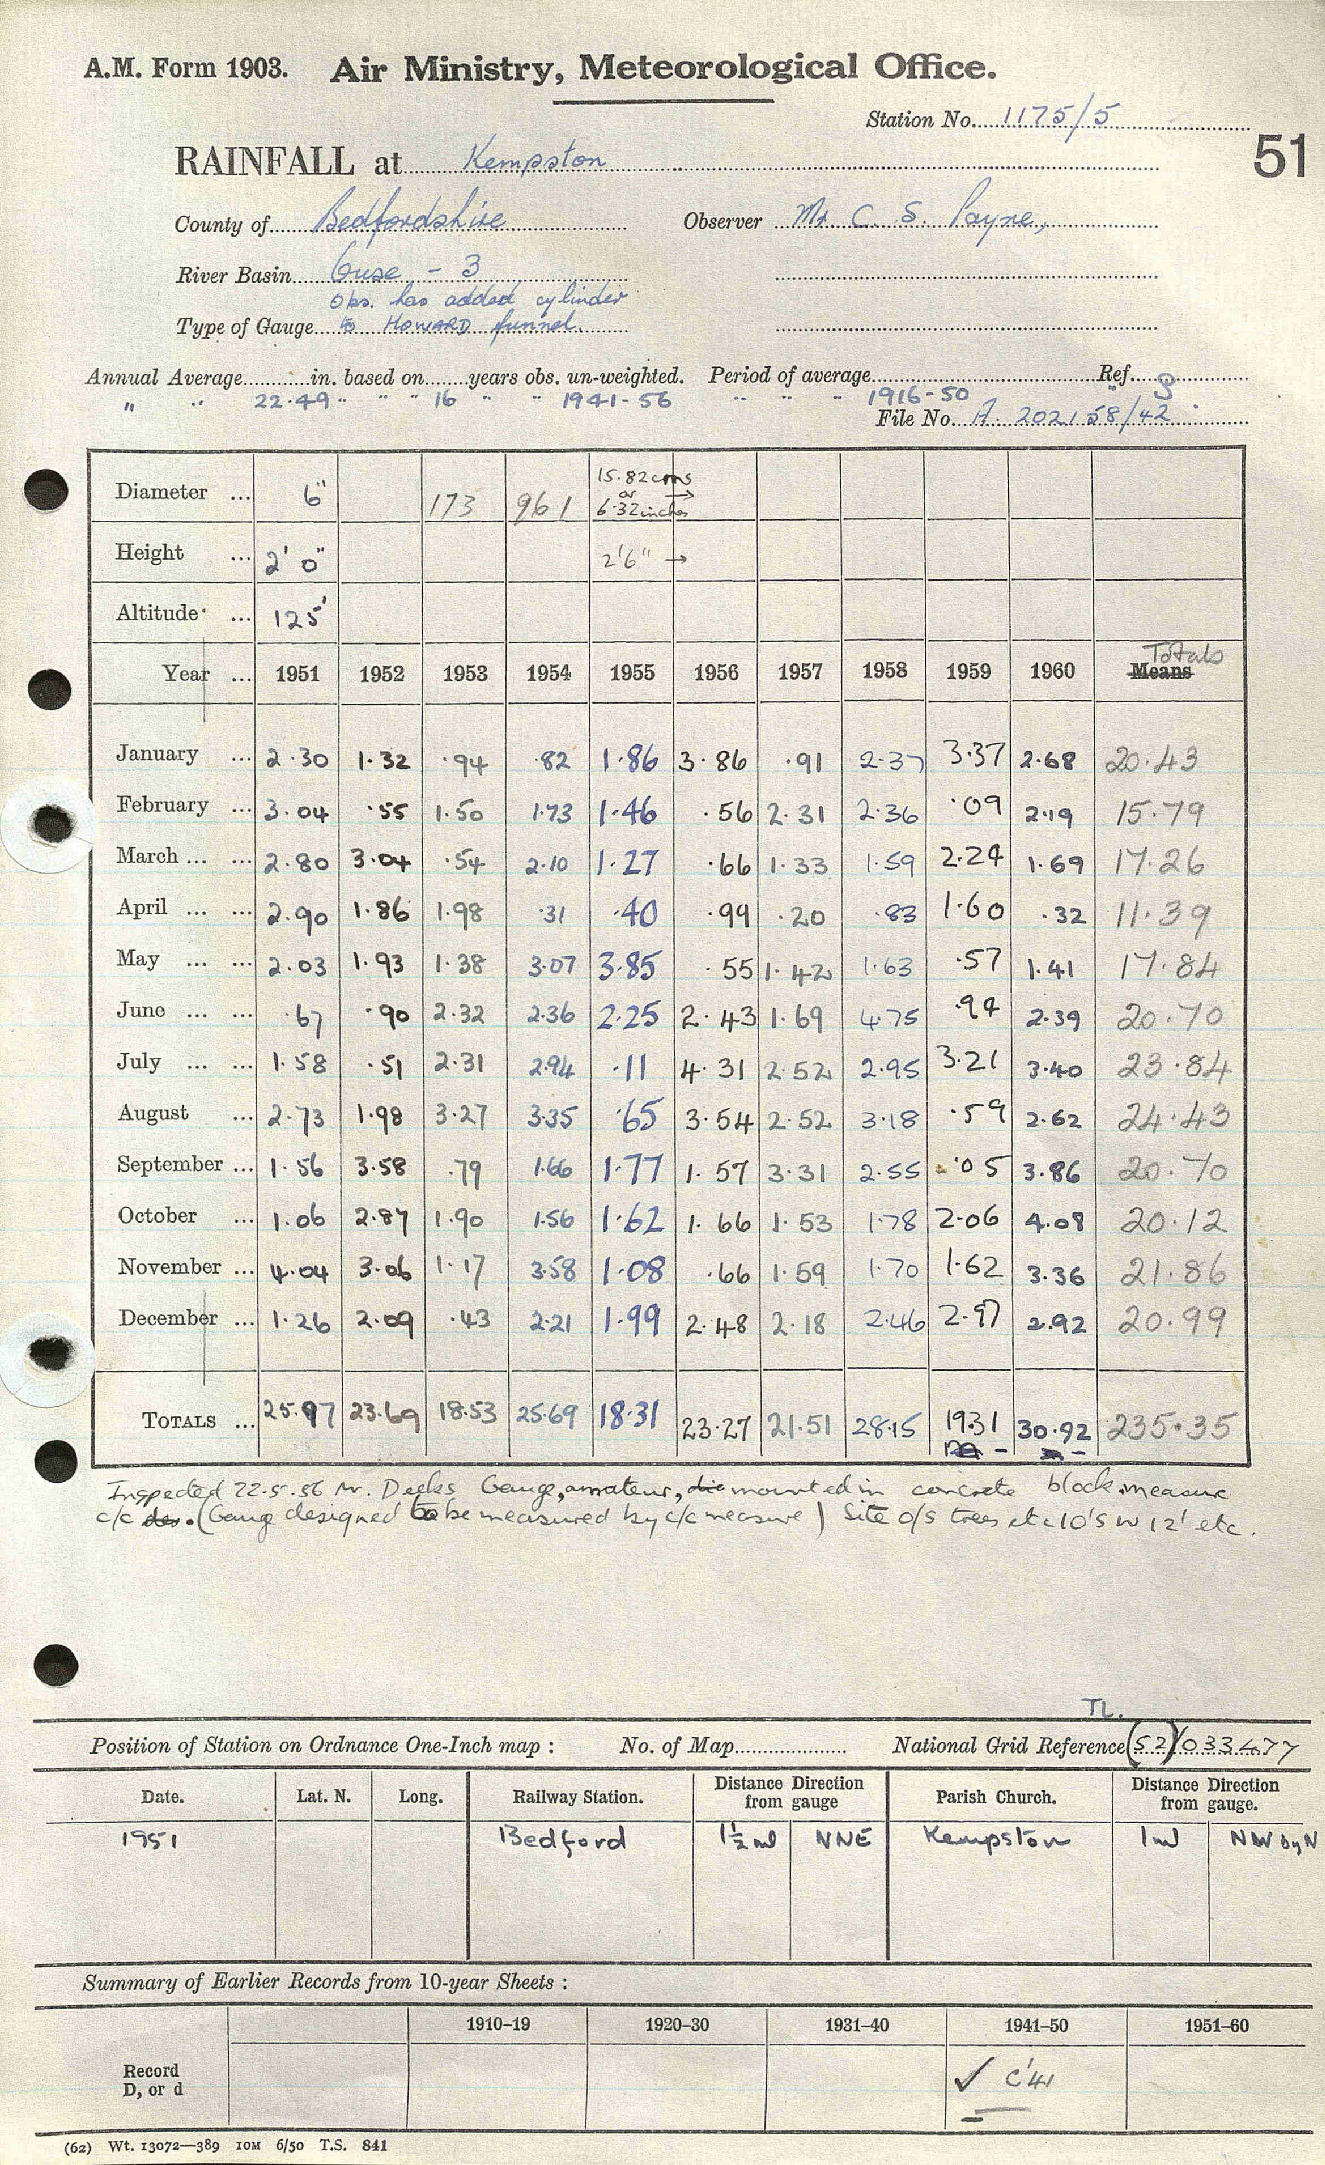 A.M. Form 1903. Air Ministry, Meteorological Office.
Station No. 1175/5
51
RAINFALL at Kempston
County of Bedfordshire Observer Mr C. S. Payne,
River Basin Ouse - 3
Obs. has added cylinder
Type of Gauge to HOWARD funnel.
Annual Average in. based on years obs. un-weighted. Period of average Ref.
" " 22.49 " " " 16 " " 1941-56 " " " 1916-50 "
File No. A. 202158/42
Diameter ... 6" 173 961 15.82 cms or 6.32 inches →
Height ... 2' 0" 2'6" →
Altitude ... 125'
Totals
Year ... 1951 1952 1953 1954 1955 1956 1957 1958 1959 1960 Means
January ... 2.30 1.32 .94 .82 1.86 3.86 .91 2.37 3.37 2.68 20.43
February ... 3.04 .55 1.50 1.73 1.46 .56 2.31 2.36 .09 2.19 15.79
March ... ... 2.80 3.04 .54 2.10 1.27 .66 1.33 1.59 2.24 1.69 17.26
April ... ... 2.90 1.86 1.98 .31 .40 .99 .20 .83 1.60 .32 11.39
May ... ... 2.03 1.93 1.38 3.07 3.85 .55 1.42 1.63 .57 1.41 17.84
June ... ... .67 .90 2.32 2.36 2.25 2.43 1.69 4.75 .94 2.39 20.70
July ... ... 1.58 .51 2.31 2.94 .11 4.31 2.52 2.95 3.21 3.40 23.84
August ... 2.73 1.98 3.27 3.35 .65 3.54 2.52 3.18 .59 2.62 24.43
September ... 1.56 3.58 .79 1.66 1.77 1.57 3.31 2.55 .05 3.86 20.70
October ... 1.06 2.87 1.90 1.56 1.62 1.66 1.53 1.78 2.06 4.08 20.12
November ... 4.04 3.06 1.17 3.58 1.08 .66 1.59 1.70 1.62 3.36 21.86
December ... 1.26 2.09 .43 2.21 1.99 2.48 2.18 2.46 2.97 2.92 20.99
TOTALS ... 25.97 23.69 18.53 25.69 18.31 23.27 21.51 28.15 19.31 30.92 235.35
Inspected 22.5.56 Mr. Deeks Gauge, amateur, mounted in concrete block measure
c/c. (Gauge designed to be measured by c/c measure) Site o/s trees etc 10' SW 12' etc.
TL.
Position of Station on Ordnance One-Inch map : No. of Map National Grid Reference (52)/033477
Date. Lat. N. Long. Railway Station. Distance Direction from gauge Parish Church. Distance Direction from gauge.
1951 Bedford 1½ ml NNE Kempston 1 ml NW by N
Summary of Earlier Records from 10-year Sheets :
1910–19 1920–30 1931–40 1941–50 1951–60
Record
D, or d ✓ C'41
(62) Wt. 13072—389 10M 6/50 T.S. 841